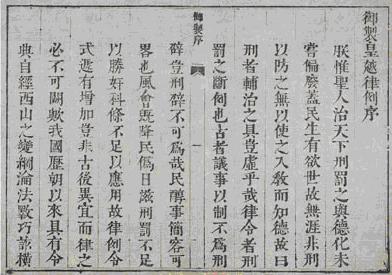 御製皇越律例序
朕惟聖人治天下刑罰之與德化未
嘗偏廢蓋民生有欲世故無涯非刑
以防之無以使之入教而知德故曰
刑者輔治之具豈虛乎哉律令者刑
罰之斷例也古者議事以制不為刑
御製序
一
辟豈刑辟不可為哉民醇事簡容可
畧也風會旣降民偽日滋刑罰不足
以勝奸科條不足以應用故律例令
式遞有增加豈非古後異宜而律之
必不可闕歟我國歷朝以來具有令
典自經西山之變綱淪法斁巧橫